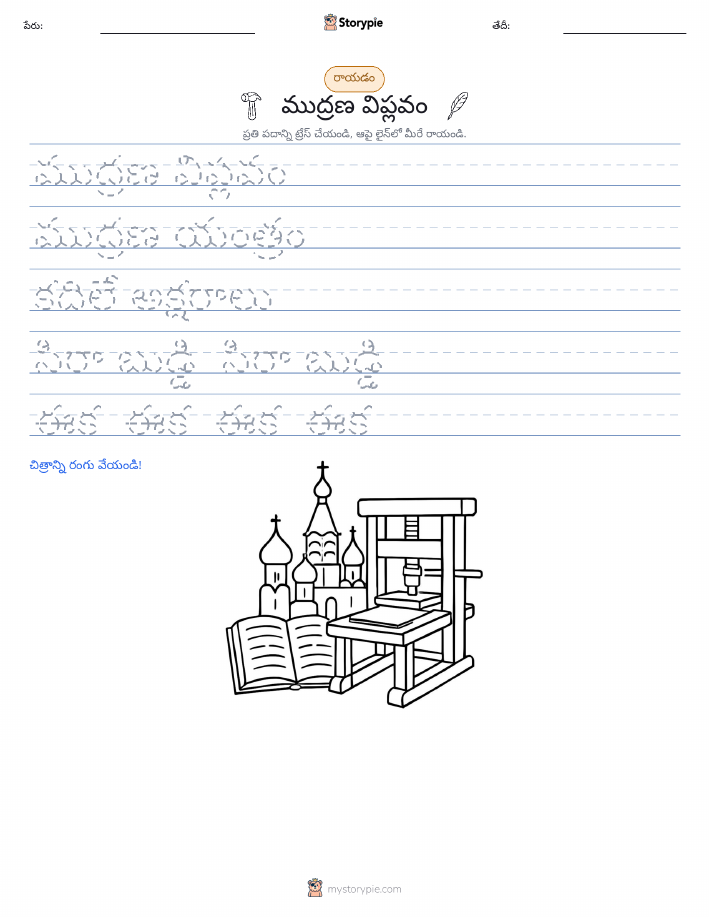 పేరు:
Storypie
తేదీ:
రాయడం
ముద్రణ విప్లవం
ప్రతి పదాన్ని ట్రేస్ చేయండి, ఆపై లైన్‌లో మీరే రాయండి.
ముద్రణ విప్లవం
ముద్రణ యంత్రం
కదిలే అక్షరాలు
సిరా బుడ్డి సిరా బుడ్డి
ఈక ఈక ఈక ఈక
చిత్రాన్ని రంగు వేయండి!
mystorypie.com